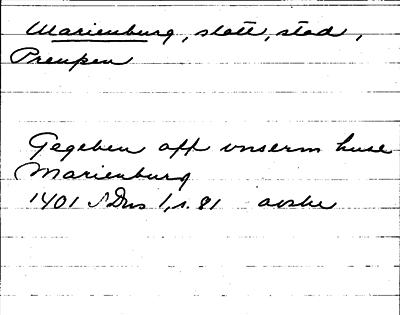 Marienburg, slott, stad,
Preußen
Gegeben off vnserm huse
Marienburg
1401 SDns 1, s. 81 avskr